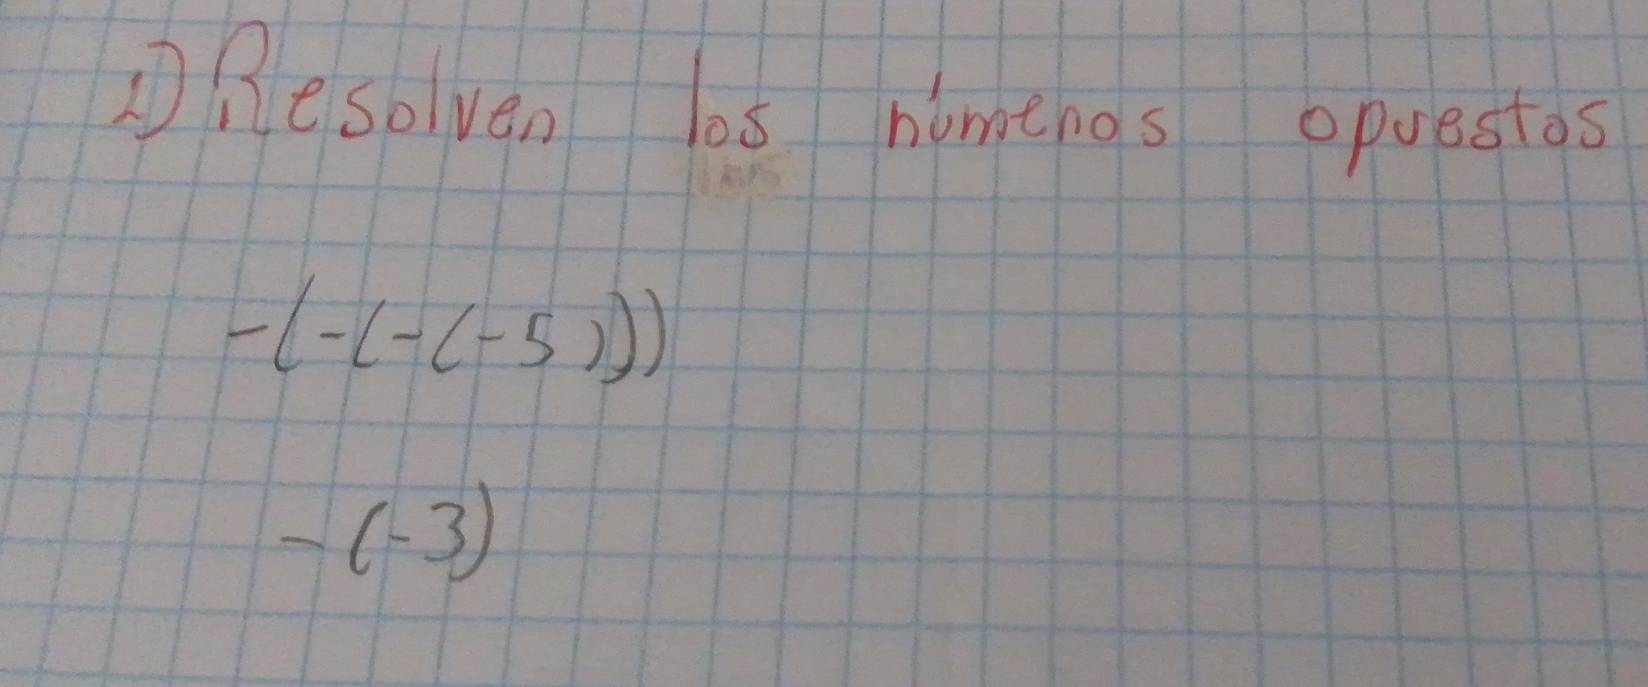 1) Resolver los números opuestos
-(-(-(-5)))
-(-3)